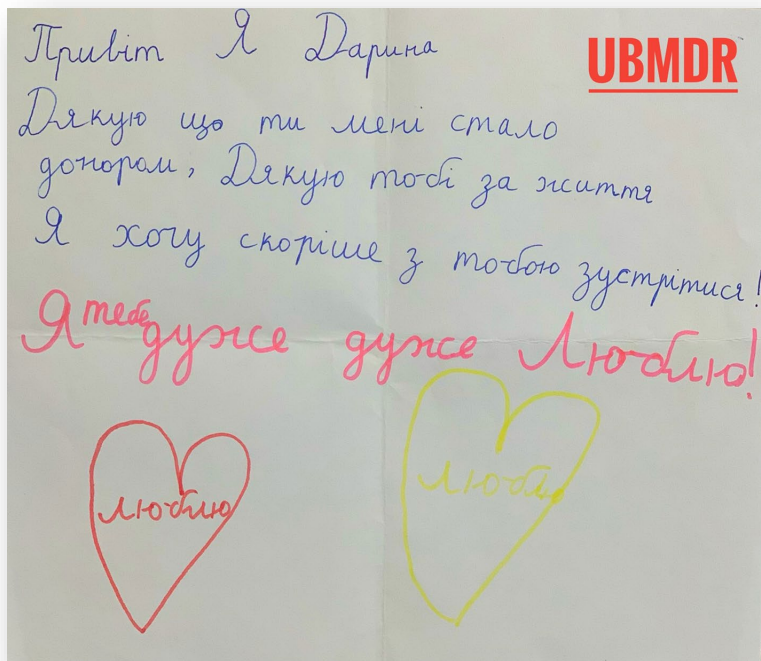 Привіт Я Дарина
UBMDR
Дякую що ти мені стало
донором, Дякую тобі за життя
Я хочу скоріше з тобою зустрітися!
Я тебе дуже дуже Люблю!
люблю
люблю